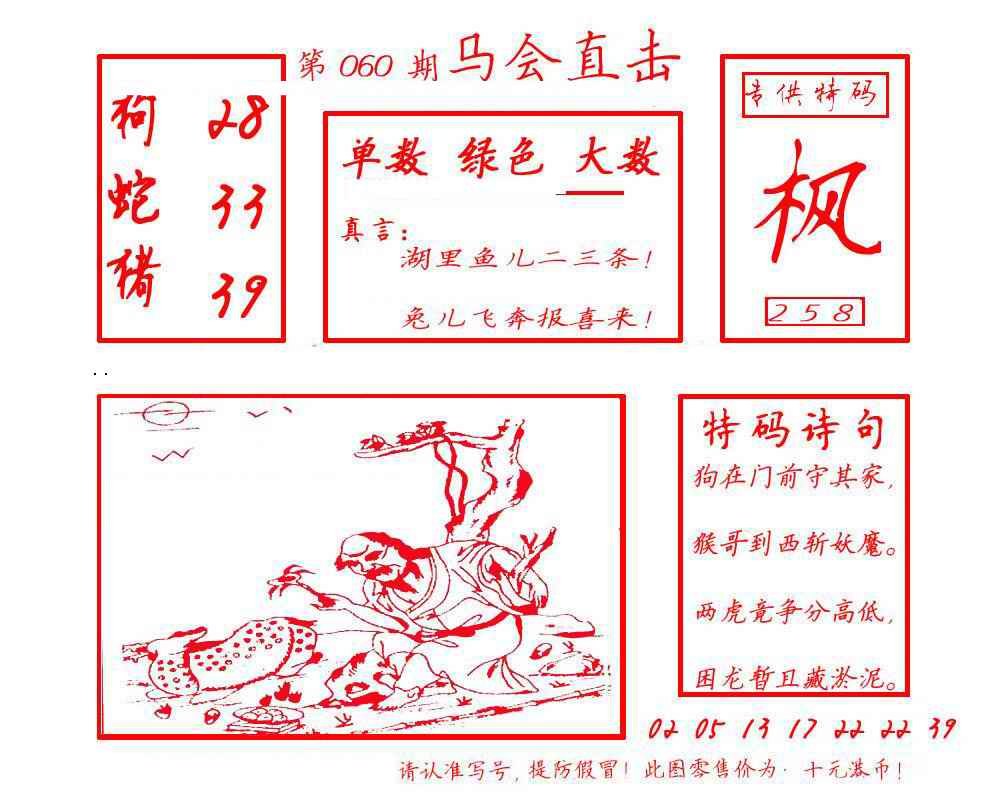 第 060 期 马会直击
狗 28
蛇 33
猪 39
单数 绿色 大数
真言：
湖里鱼儿二三条！
兔儿飞奔报喜来！
专供特码
枫
258
特码诗句
狗在门前守其家，
猴哥到西斩妖魔。
两虎竟争分高低，
困龙暂且藏淤泥。
02 05 13 17 22 22 39
请认准写号，提防假冒！此图零售价为·十元港币！